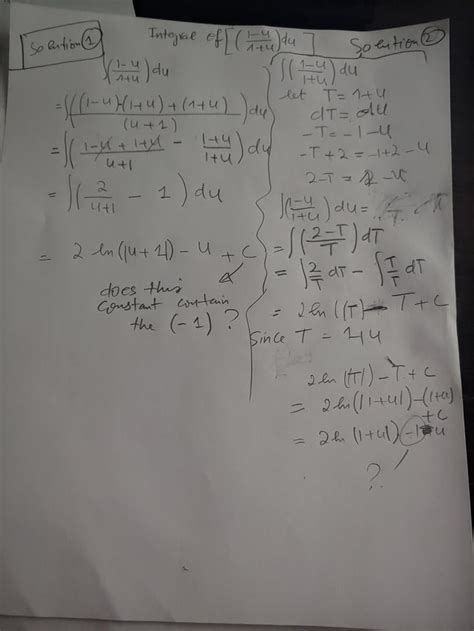 Integral of [(1-u/1+u)du]
Solution 1
∫(1-u/1+u)du
= ∫(((1-u)-(1+u)+(1+u))/(u+1))du
= ∫((1-u+1+u)/(u+1) - (1+u)/(1+u))du
= ∫(2/(u+1) - 1) du
= 2 ln(|u+1|) - u + c
does this
constant contain
the (-1) ?
Solution 2
∫(1-u/1+u)du
let T = 1+u
dT = du
-T = -1-u
-T+2 = -1+2-u
2-T = 1-u
∫(1-u/1+u)du =
= ∫(2-T/T)dT
= ∫2/T dT - ∫T/T dT
= 2ln(|T|) - T + C
Since T = 1+u
2ln(|T|) - T + C
= 2ln(|1+u|) - (1+u)
+ C
= 2ln(|1+u|) -1-u
?